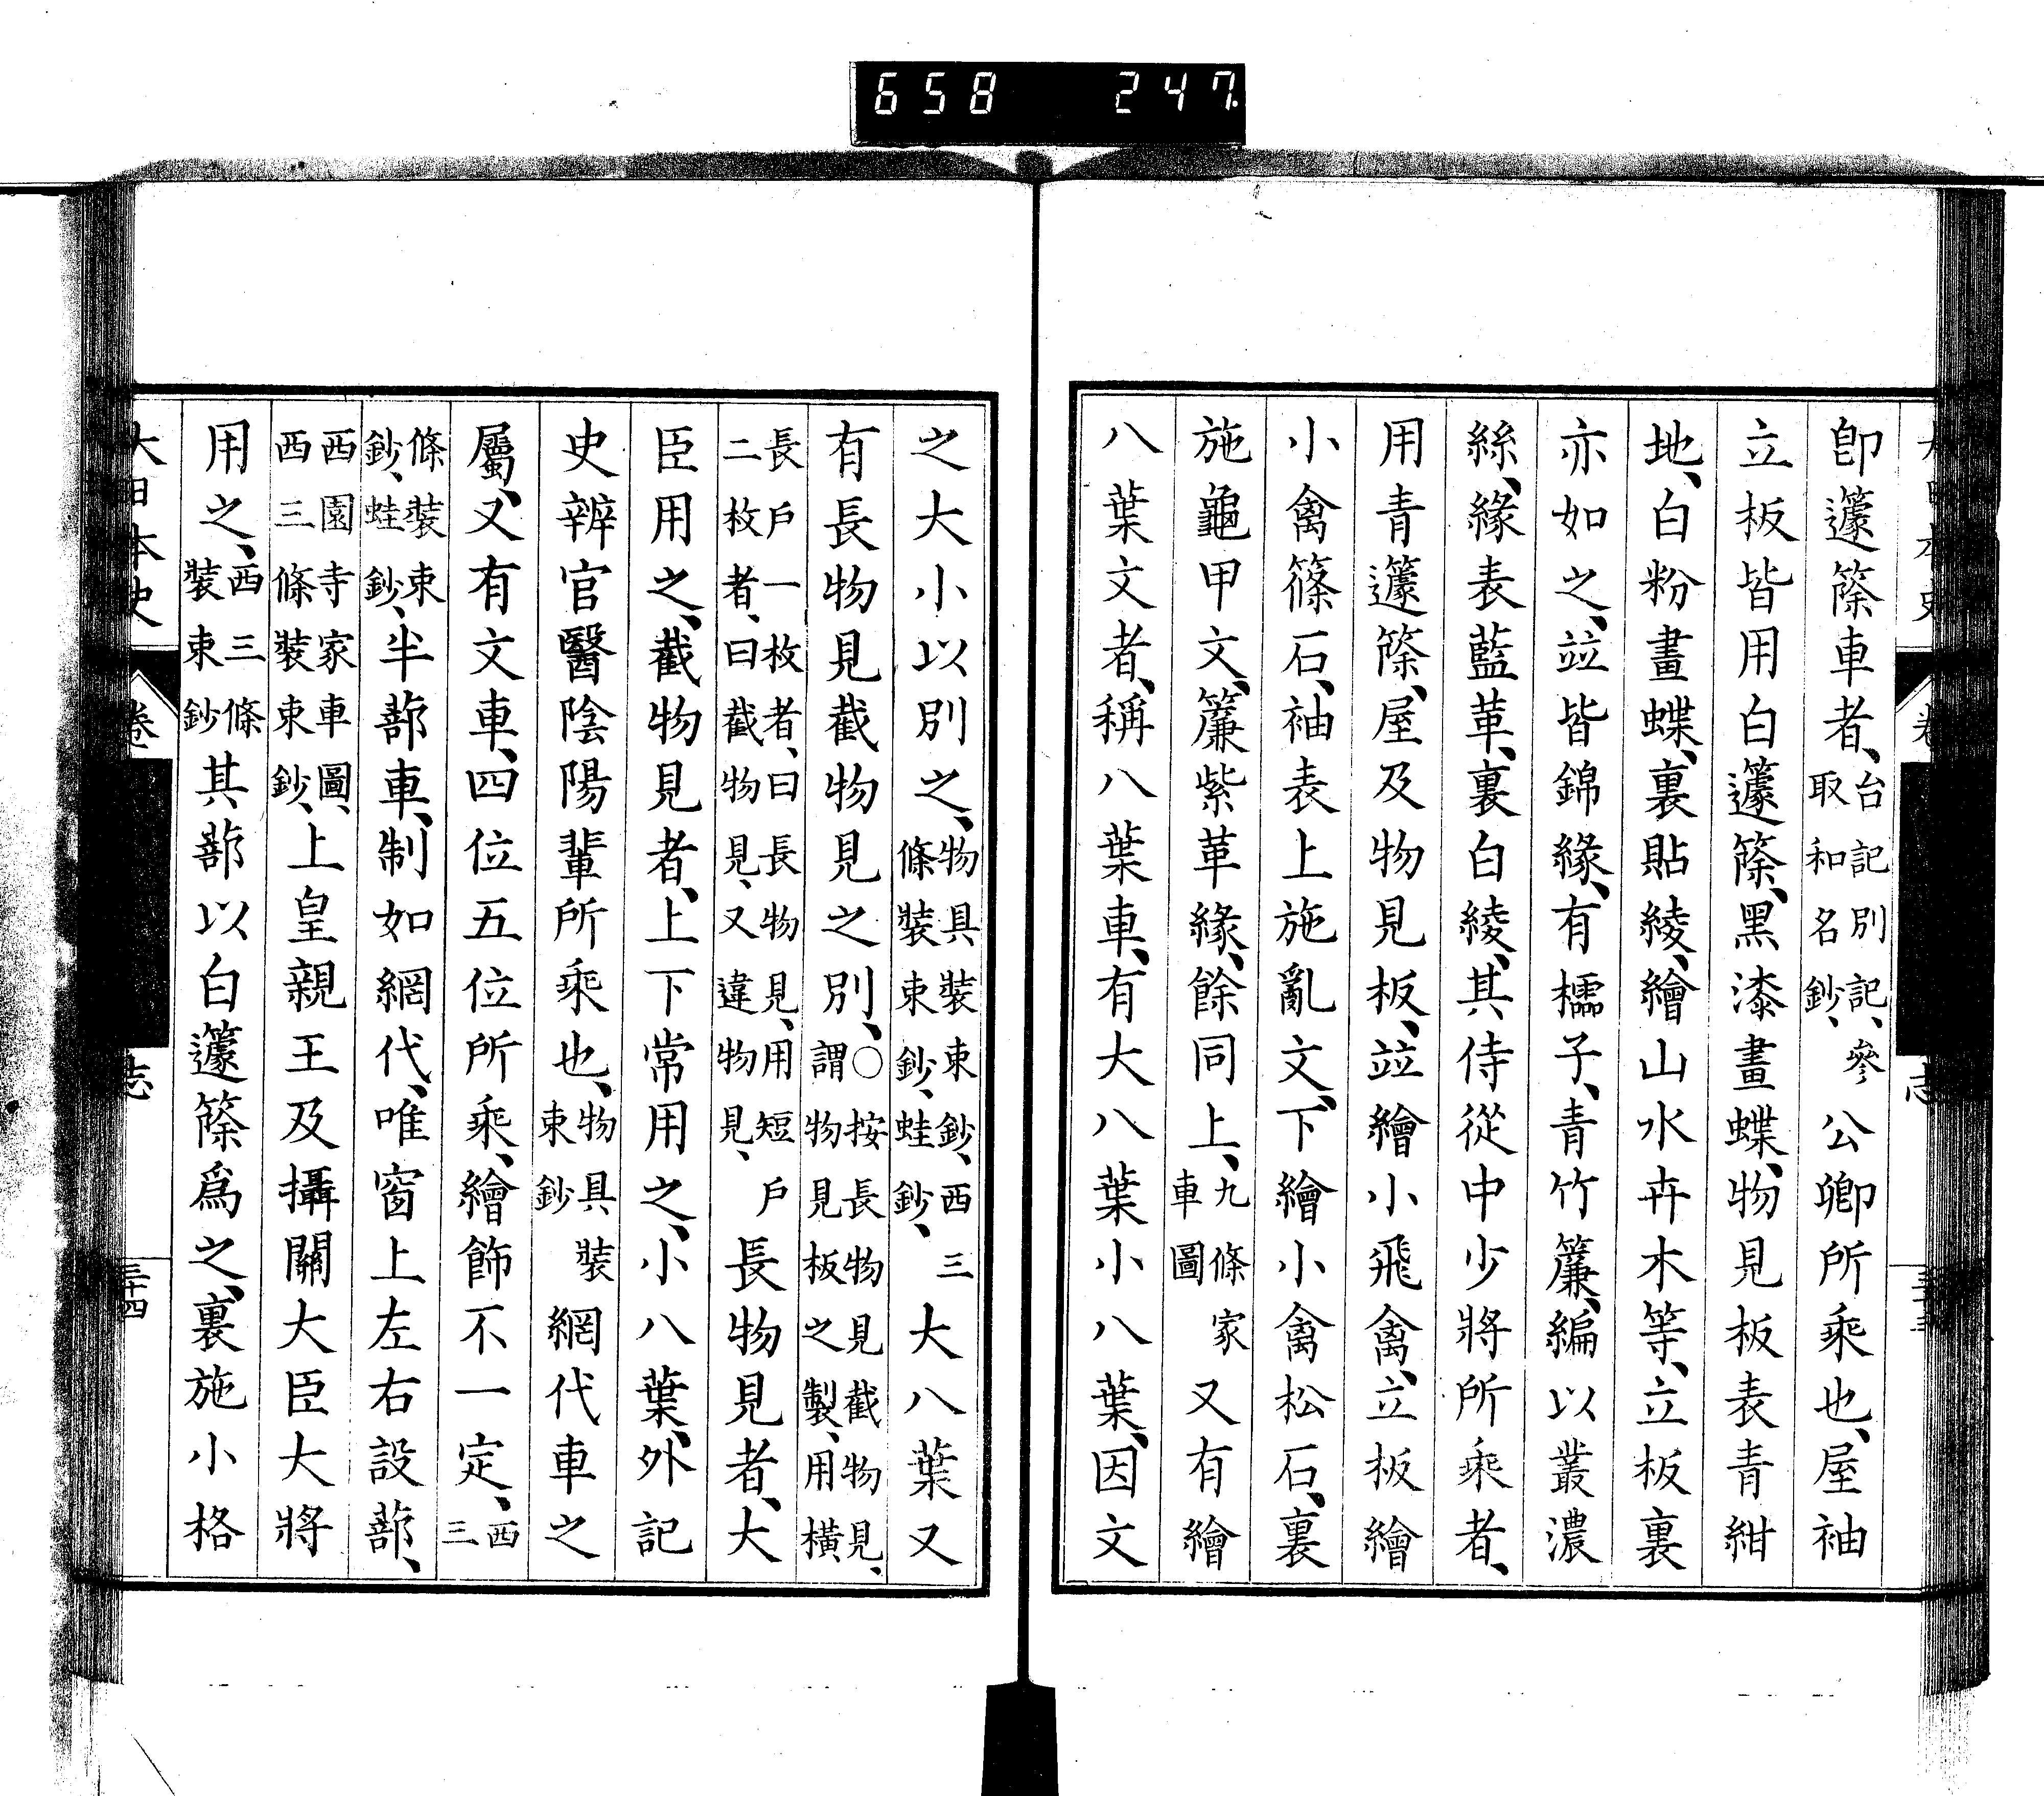 658 247.
卽籧篨車者、台記別記、參取和名鈔、公卿所乘也、屋袖
立板皆用白籧篨、黑漆畫蝶、物見板表青紺
地、白粉畫蝶、裏貼綾、繪山水卉木等、立板裏
亦如之、竝皆錦緣、有檽子、青竹簾、編以叢濃
絲、緣表藍革、裏白綾、其侍從中少將所乘者、
用青籧篨、屋及物見板、竝繪小飛禽、立板繪
小禽篠石、袖表上施亂文、下繪小禽松石、裏
施龜甲文、簾紫革緣、餘同上、九條家車圖又有繪
八葉文者、稱八葉車、有大八葉小八葉、因文
之大小以別之、物具裝束鈔、西三條裝束鈔、蛙鈔、大八葉又
有長物見截物見之別、○按長物見、截物見、謂物見板之製、用橫
長戶一枚者、曰長物見、用短戶二枚者、曰截物見、又違物見、長物見者、大
臣用之、截物見者、上下常用之、小八葉、外記
史辨官醫陰陽輩所乘也、物具裝束鈔網代車之
屬、又有文車、四位五位所乘、繪飾不一定、西三
條裝束鈔、蛙鈔、半蔀車、制如網代、唯窗上左右設蔀、
西園寺家車圖、西三條裝束鈔、上皇親王及攝關大臣大將
用之、西三條裝束鈔其蔀以白籧篨爲之、裏施小格
大日本史 卷 志 三十四